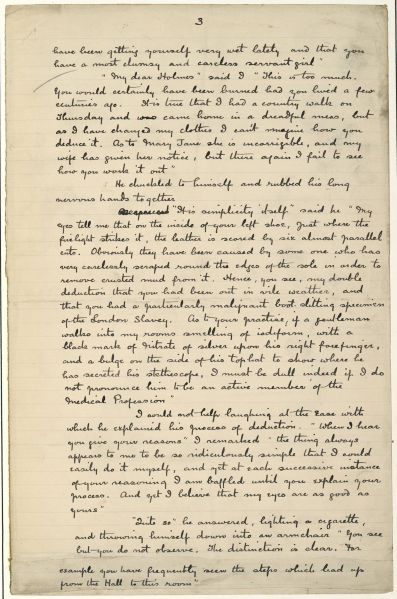 3
have been getting yourself very wet lately and that you
have a most clumsy and careless servant girl"
"My dear Holmes" said I "This is too much.
You would certainly have been burned had you lived a few
centuries ago. It is true that I had a country walk on
Thursday and came home in a dreadful mess, but
as I have changed my clothes I cant imagine how you
deduce it. As to Mary Jane she is incorrigible, and my
wife has given her notice, but there again I fail to see
how you work it out"
He chuckled to himself and rubbed his long
nervous hands together
"It is simplicity itself" said he "My
eyes tell me that on the inside of your left shoe, just where the
firelight strikes it, the leather is scored by six almost parallel
cuts. Obviously they have been caused by some one who has
very carelessly scraped round the edges of the sole in order to
remove crusted mud from it. Hence, you see, my double
deduction that you had been out in vile weather, and
that you had a particularly malignant boot slitting specimen
of the London Slavey. As to your practice, if a gentleman
walks into my rooms smelling of iodiform, with a
black mark of Nitrate of silver upon his right forefinger,
and a bulge on the side of his top hat to show where he
has secreted his stethescope, I must be dull indeed if I do
not pronounce him to be an active member of the
Medical Profession"
I could not help laughing at the ease with
which he explained his process of deduction. "When I hear
you give your reasons" I remarked "the thing always
appears to me to be so ridiculously simple that I could
easily do it myself, and yet at each successive instance
of your reasoning I am baffled until you explain your
process. And yet I believe that my eyes are as good as
yours"
"Quite so" he answered, lighting a cigarette,
and throwing himself down into an armchair "You see
but you do not observe. The distinction is clear. For
example you have frequently seen the steps which lead up
from the Hall to this room"